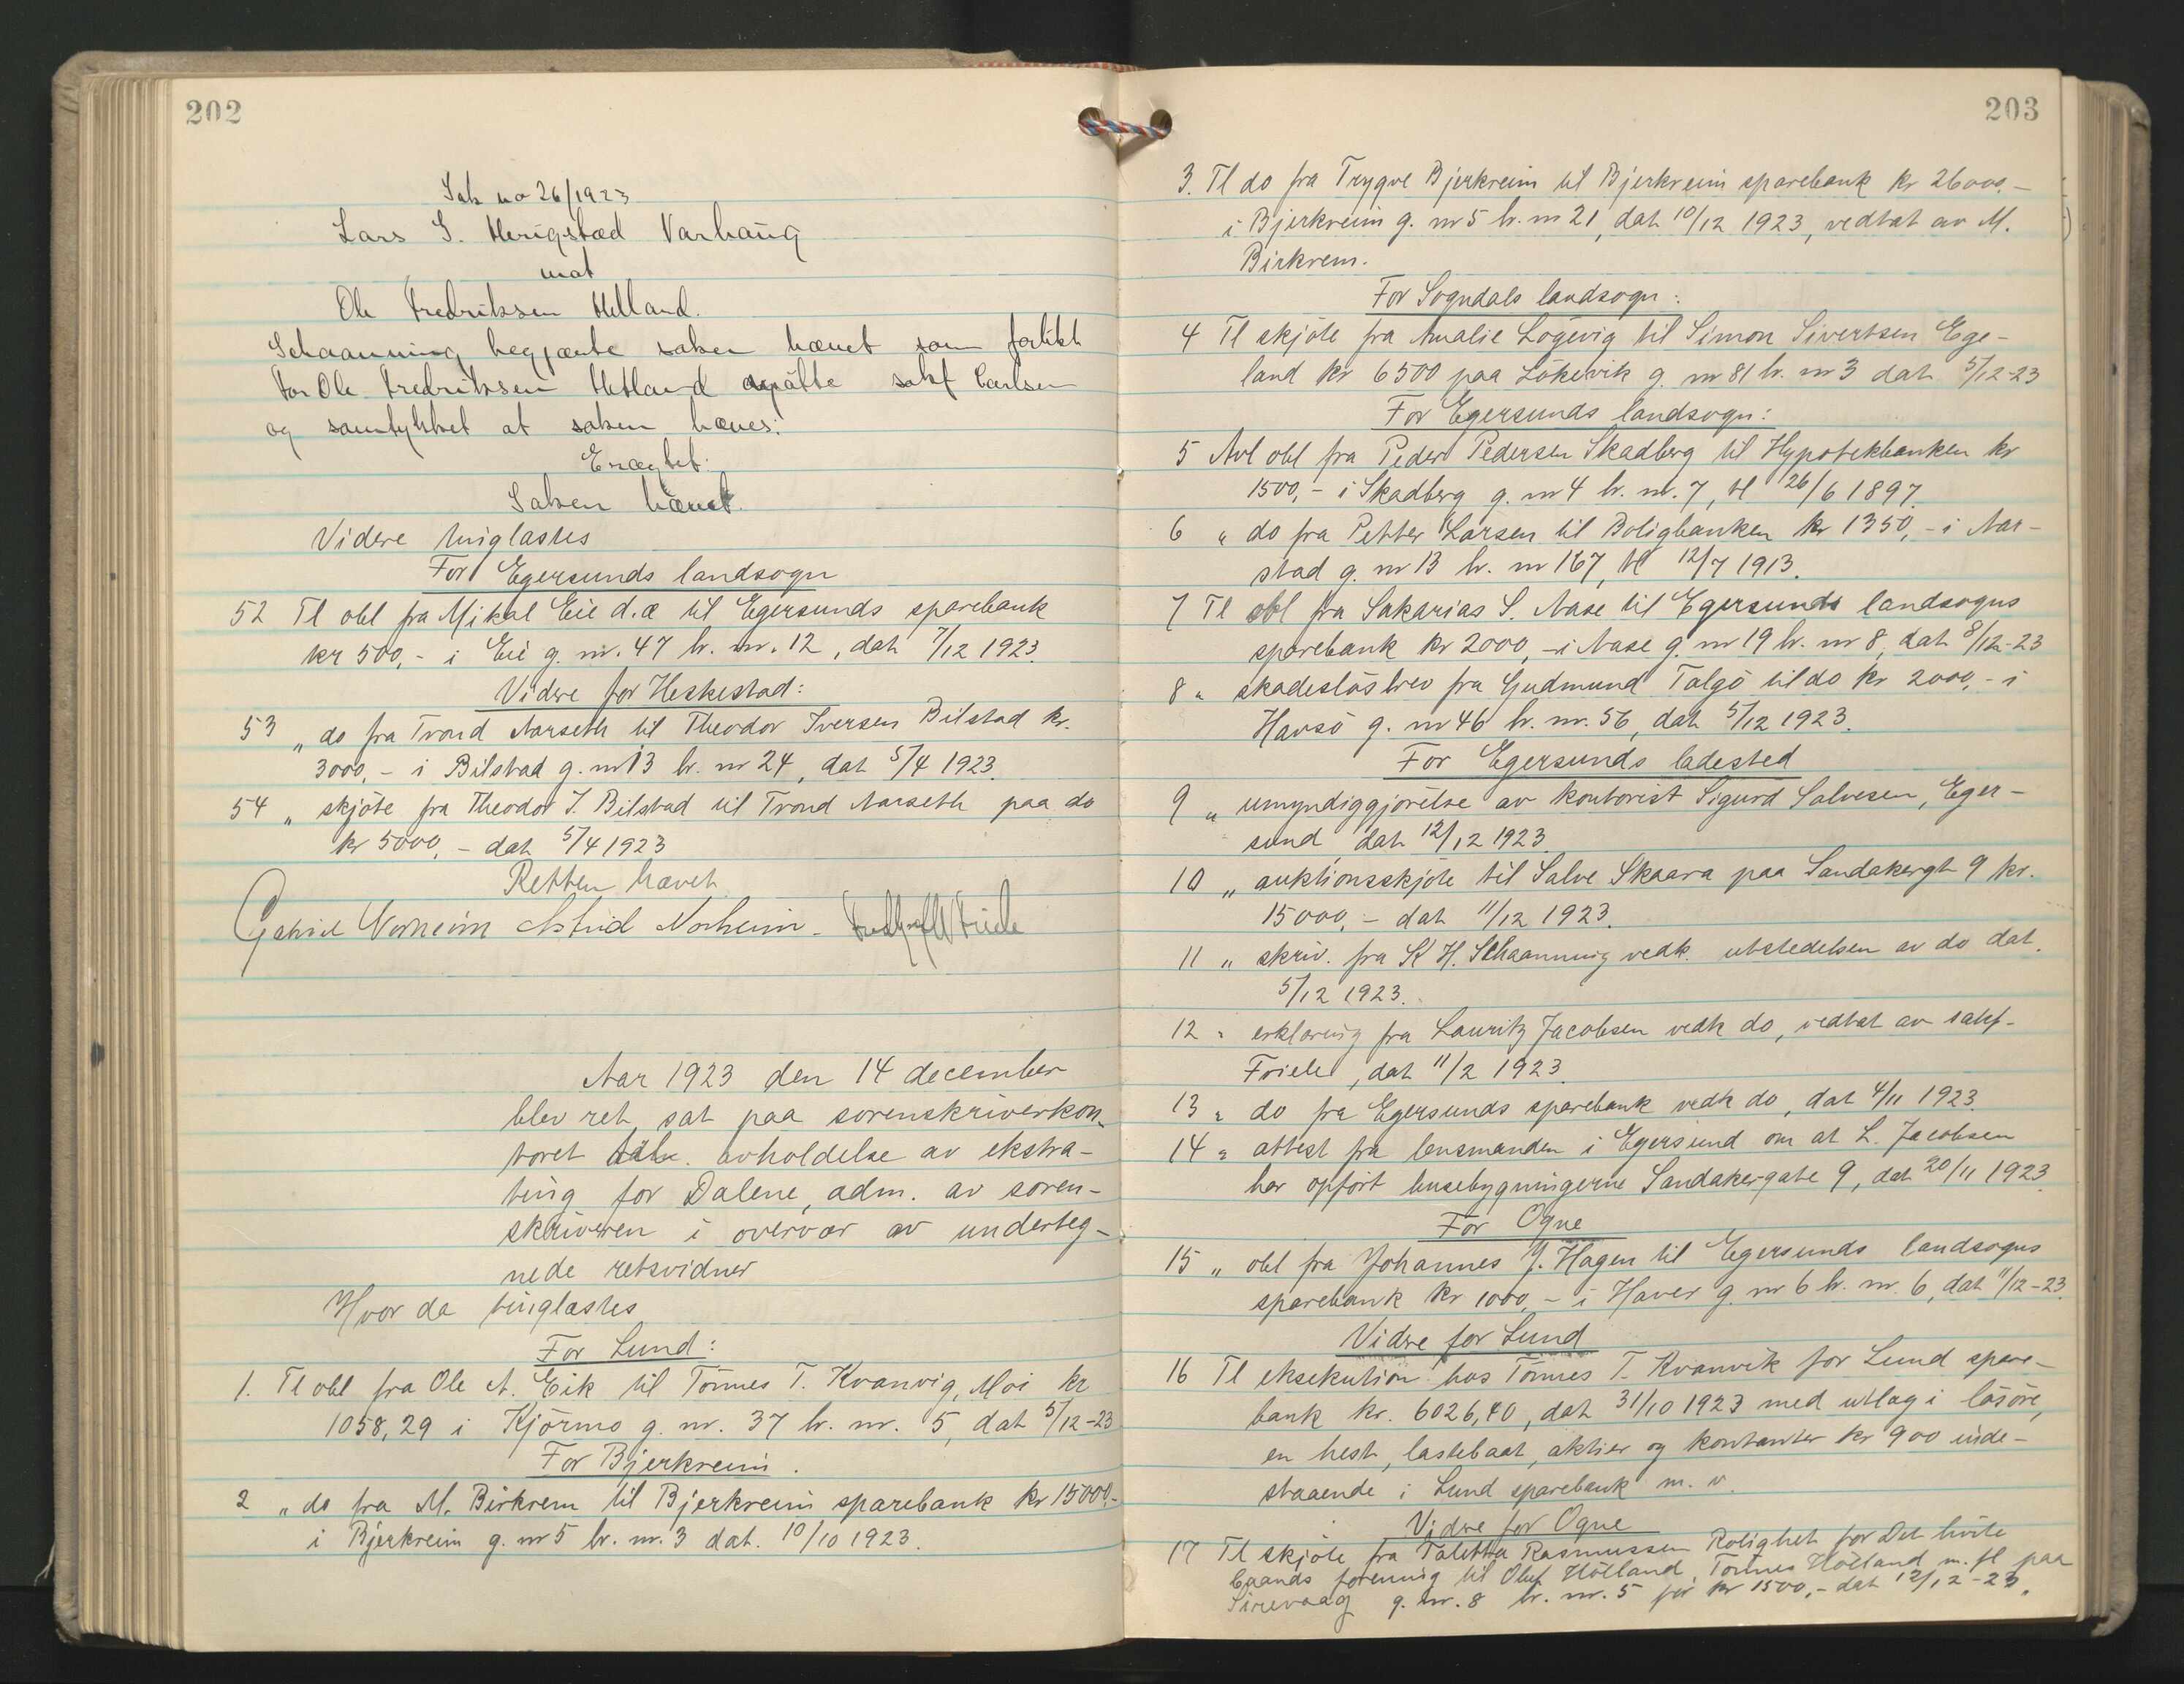 202
Sak no 26/1923
Lars S. Herigstad Varhaug
mot
Ole Fredriksen Hetland.
Schaanning begjærte saken hævet som forlikt
For Ole Fredriksen Hetland møtte sakf Carlsen
og samtykket at saken hæves:
Eragtet:
Saken hævet.
Videre tinglastes
For Egersunds landsogn
52 Tl obl fra Mikal Eie d.æ til Egersunds sparebank
kr 500,- i Eie g. nr. 47 br. nr. 12, dat 7/12 1923.
Videre for Heskestad:
53 „ do fra Trond Aarseth til Theodor Iversen Bilstad kr.
3000,- i Bilstad g. nr 13 br. nr 24, dat 5/4 1923.
54 „ skjöte fra Theodor I. Bilstad til Trond Aarseth paa do
kr 5000,- dat 5/4 1923
Retten hævet
Gabriel Norheim Astrid Norheim -
Aar 1923 den 14 december
blev ret sat paa sorenskriverkon-
toret avholdelse av ekstra-
ting for Dalene, adm. av soren-
skriveren i overvær av underteg-
nede retsvidner
Hvor da tinglastes
For Lund:
1. Tl obl fra Ole A. Eik til Tönnes T. Kvanvig, Moi kr
1058,29 i Kjörmo g. nr. 37 br. nr. 5, dat 5/12-23
For Bjerkreim.
2 „ do fra M. Birkrem til Bjerkreim sparebank kr 15000,-
i Bjerkreim g. nr 5 br. nr. 3 dat. 10/10 1923.
203
3. Tl do fra Trygve Bjerkreim til Bjerkreim sparebank kr 26000,-
i Bjerkreim g. nr 5 br. nr 21, dat 10/12 1923, vedtat av M.
Birkrem.
For Sogndals landsogn:
4 Tl skjöte fra Amalie Lögevig til Simon Sivertsen Ege-
land kr 6500 paa Lökevik g. nr 81 br. nr 3 dat 5/12-23
For Egersunds landsogn:
5 Avl obl fra Peder Pedersen Skadberg til Hypotekbanken kr
1500,- i Skadberg g. nr 4 br. nr. 7, tl 26/6 1897.
6 „ do fra Petter Larsen til Boligbanken kr 1350,- i Aar-
stad g. nr 13 br. nr 167, tl 12/7 1913.
7 Tl obl fra Sakarias S. Aase til Egersunds landsogns
sparebank kr 2000,- i Aase g. nr 19 br. nr 8, dat 8/12-23
8 „ skadeslösbrev fra Gudmund Talgö til do kr 2000,- i
Havsö g. nr 46 br. nr. 56, dat 5/12 1923.
For Egersunds ladested
9 „ umyndiggjörelse av kontorist Sigurd Salvesen, Eger-
sund dat 12/12 1923.
10 „ auktionsskjöte til Salve Skaara paa Sandakergt 9 kr.
15000,- dat 11/12 1923.
11 „ skriv. fra K H. Schaanning vedk. utstedelsen av do dat.
5/12 1923.
12 „ erklæring fra Lauritz Jacobsen vedk do, vedtat av sakf.
Friele, dat 11/2 1923.
13 „ do fra Egersunds sparebank vedk do, dat 4/11 1923.
14 „ attest fra lensmanden i Egersund om at L. Jacobsen
har opfört husebygningerne Sandakergate 9, dat 20/11 1923.
For Ogne
15 „ obl fra Johannes J. Hagen til Egersunds landsogns
sparebank kr 1000,- i Haver g. nr 6 br. nr. 6, dat 11/12-23.
Videre for Lund
16 Tl eksekution hos Tönnes T. Kvanvik for Lund spare-
bank kr. 6026,40, dat 31/10 1923 med utlag i lösöre,
en hest, lastebaat, aktier og kontanter kr 900 inde-
staaende i Lund sparebank m. v.
Videre for Ogne
17 Tl skjöte fra Taletta Rasmussen Rolighet for Det hvite
baands forening til Oluf Hölland, Tönnes Hölland m. fl paa
Sirevaag g. nr. 8 br. nr. 5 for kr 1500,- dat 12/12-23.